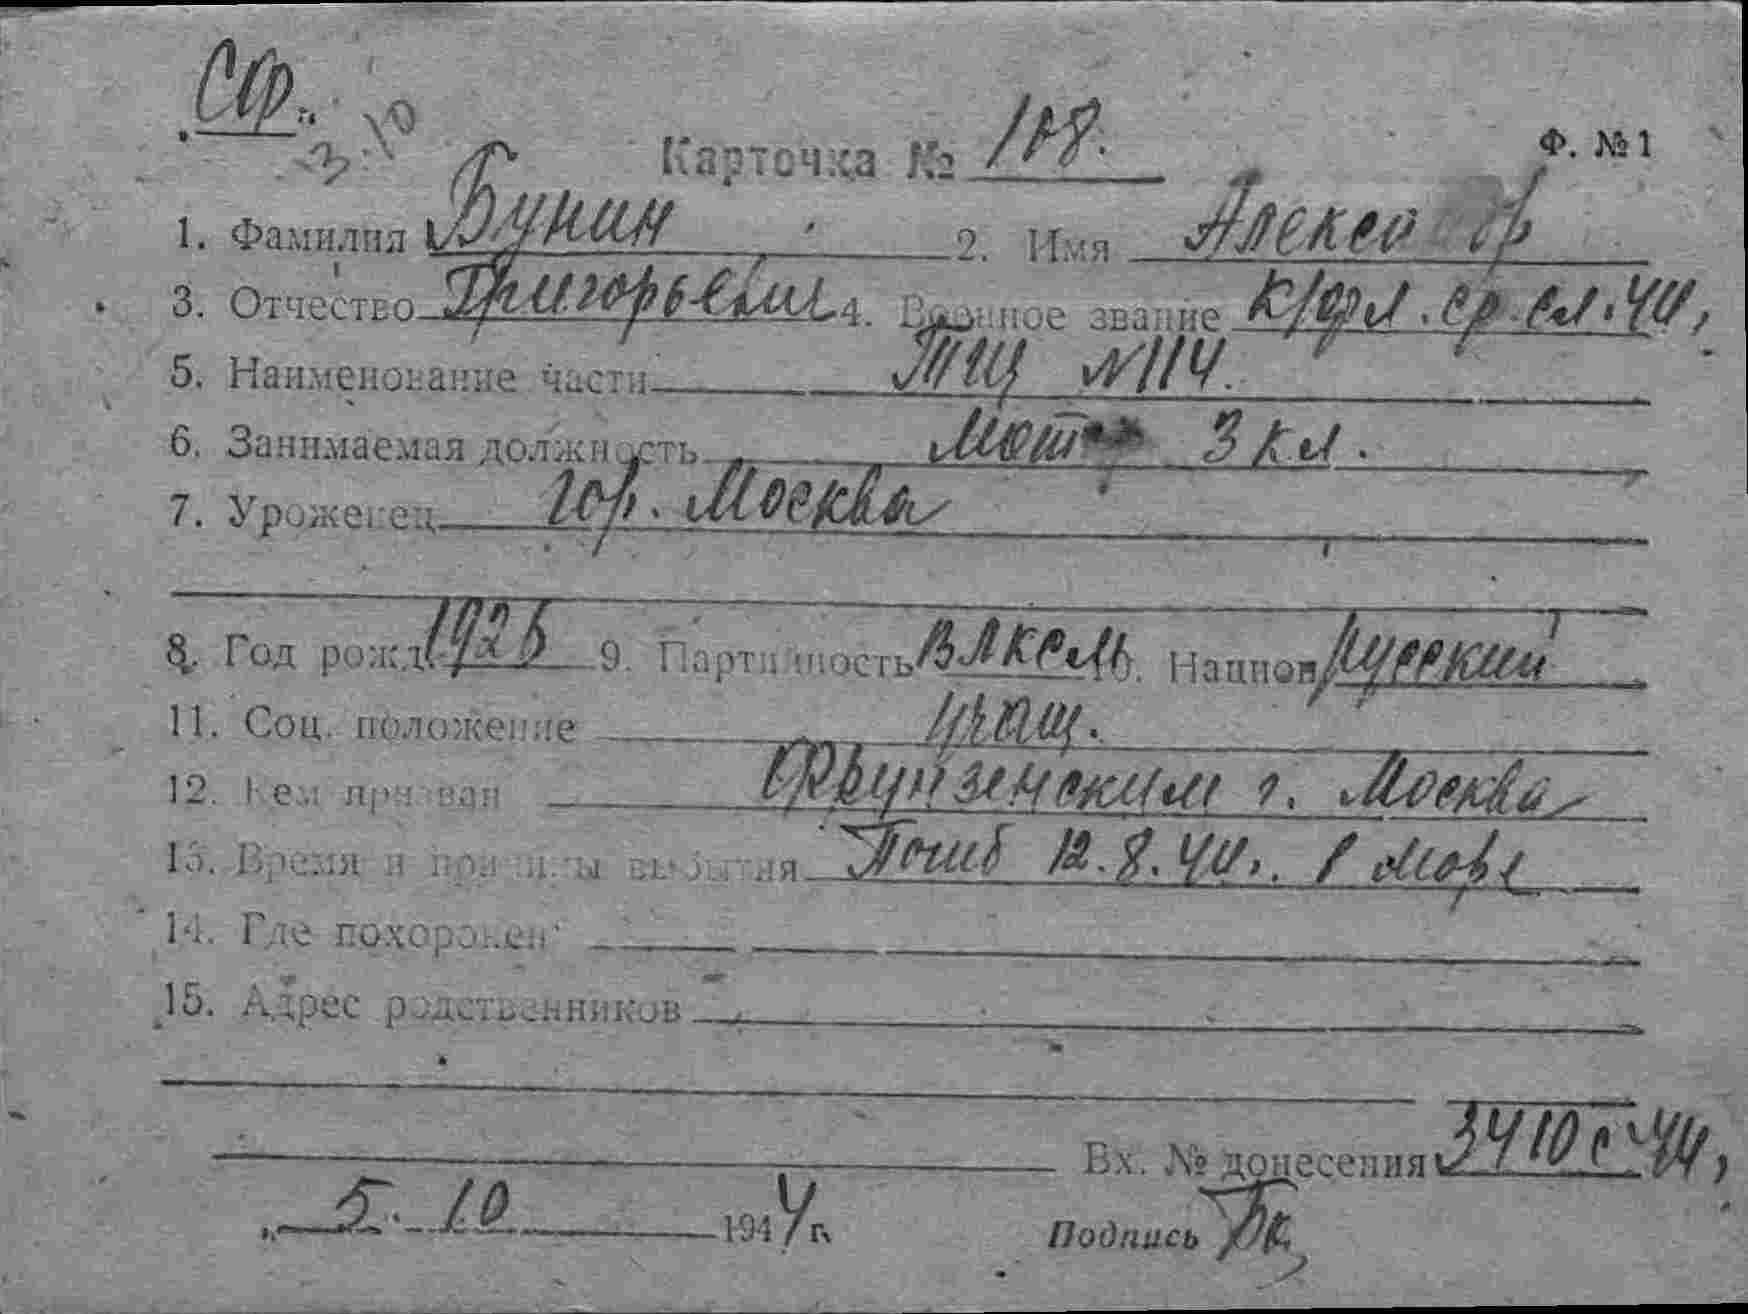 СФ.
3.10
Карточка № 108.
Ф. №1
1. Фамилия Бунин 2. Имя Александр
3. Отчество Григорьевич 4. Военное звание к/фл. ср. сл. 44г.
5. Наименование части ТЩ №114.
6. Занимаемая должность 3 кл.
7. Уроженец гор. Москва
8. Год рожд. 1926 9. Партийность ВЛКСМ 10. Национ. Русский
11. Соц. положение учащ.
12. Кем призван Фрунзенским г. Москва
13. Время и причины выбытия Погиб 12.8.44г. в море
14. Где похоронен
15. Адрес родственников
Вх. № донесения 3410с 44г.
„ 5. 10 1944г.
Подпись